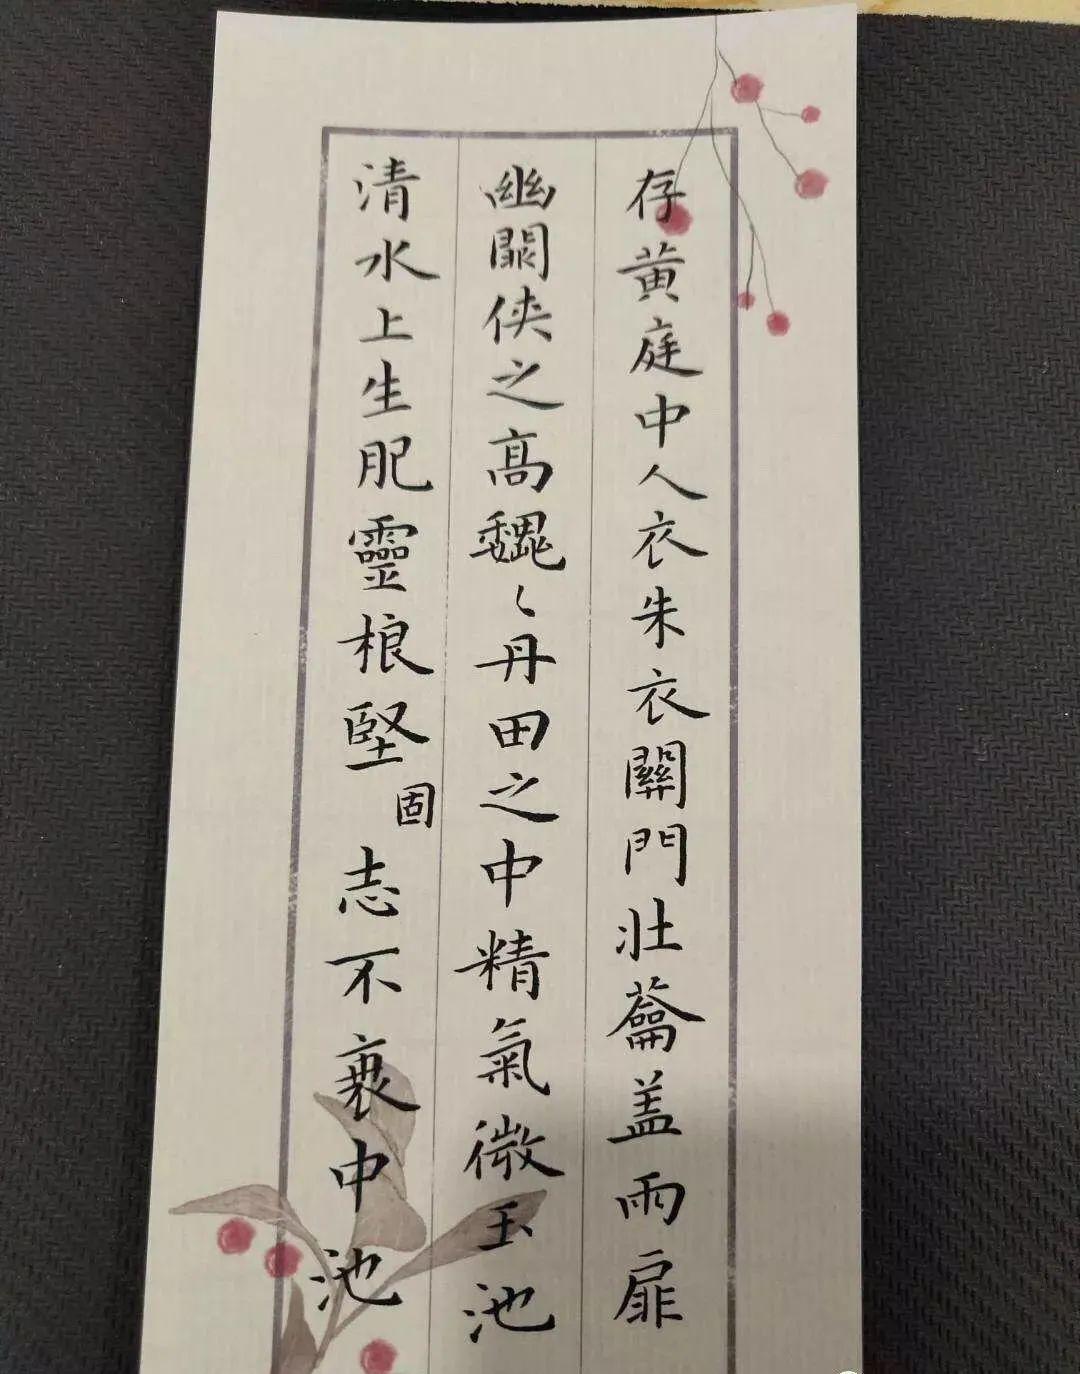 存黄庭中人衣朱衣關門壯蘥盖兩扉
幽闕侠之髙魏〻丹田之中精氣微玉池
清水上生肥靈根堅固志不衰中池